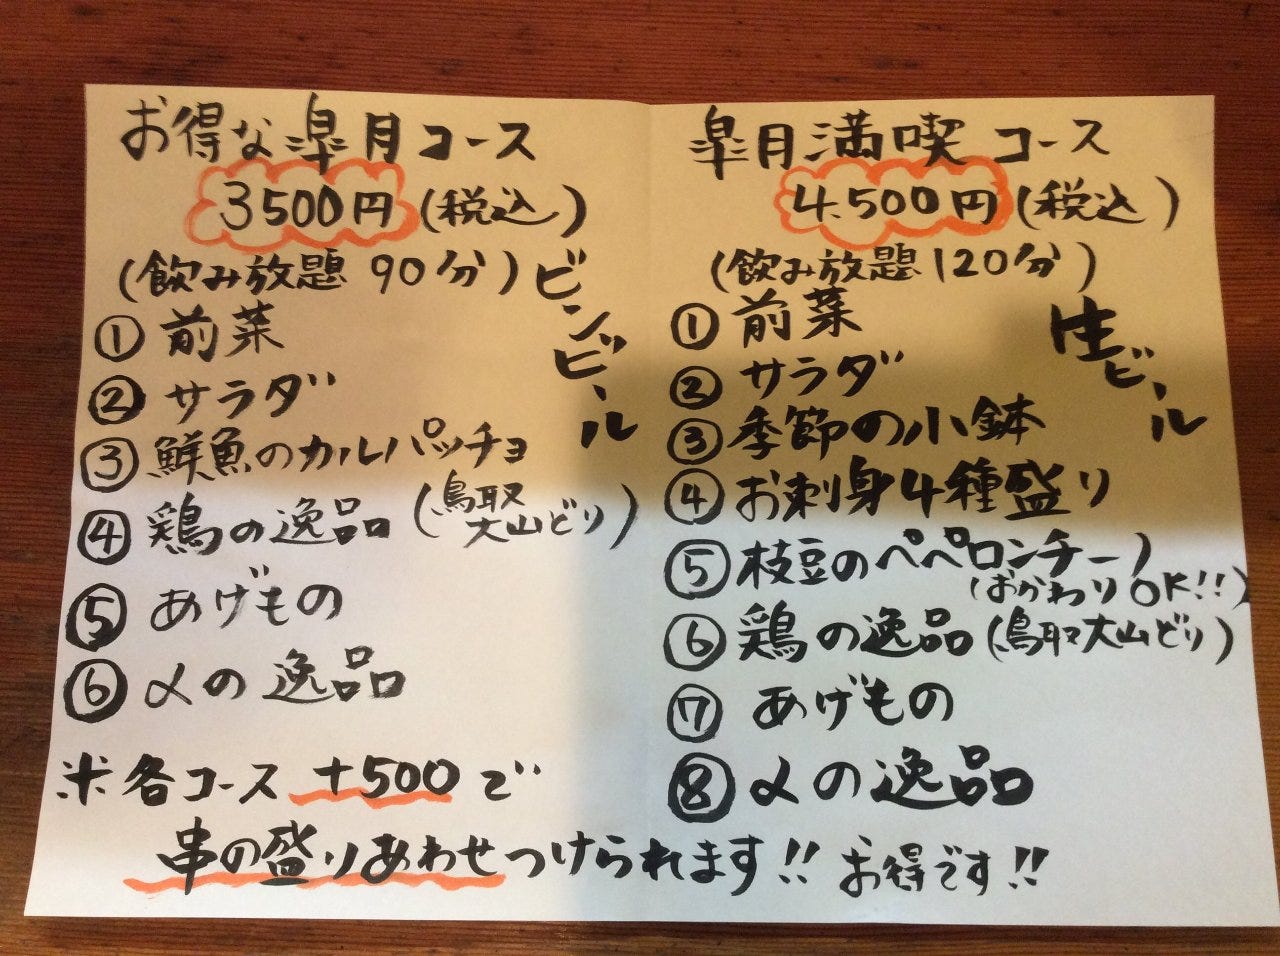 お得な皐月コース
3500円(税込)
(飲み放題 90分)
ビンビール
① 前菜
② サラダ
③ 鮮魚のカルパッチョ
④ 鶏の逸品(鳥取大山どり)
⑤ あげもの
⑥ 〆の逸品
皐月満喫コース
4.500円(税込)
(飲み放題120分)
生ビール
① 前菜
② サラダ
③ 季節の小鉢
④ お刺身4種盛り
⑤ 枝豆のペペロンチーノ
(おかわりOK!!)
⑥ 鶏の逸品(鳥取大山どり)
⑦ あげもの
⑧ 〆の逸品
※各コース+500で
串の盛りあわせつけられます!! お得です!!